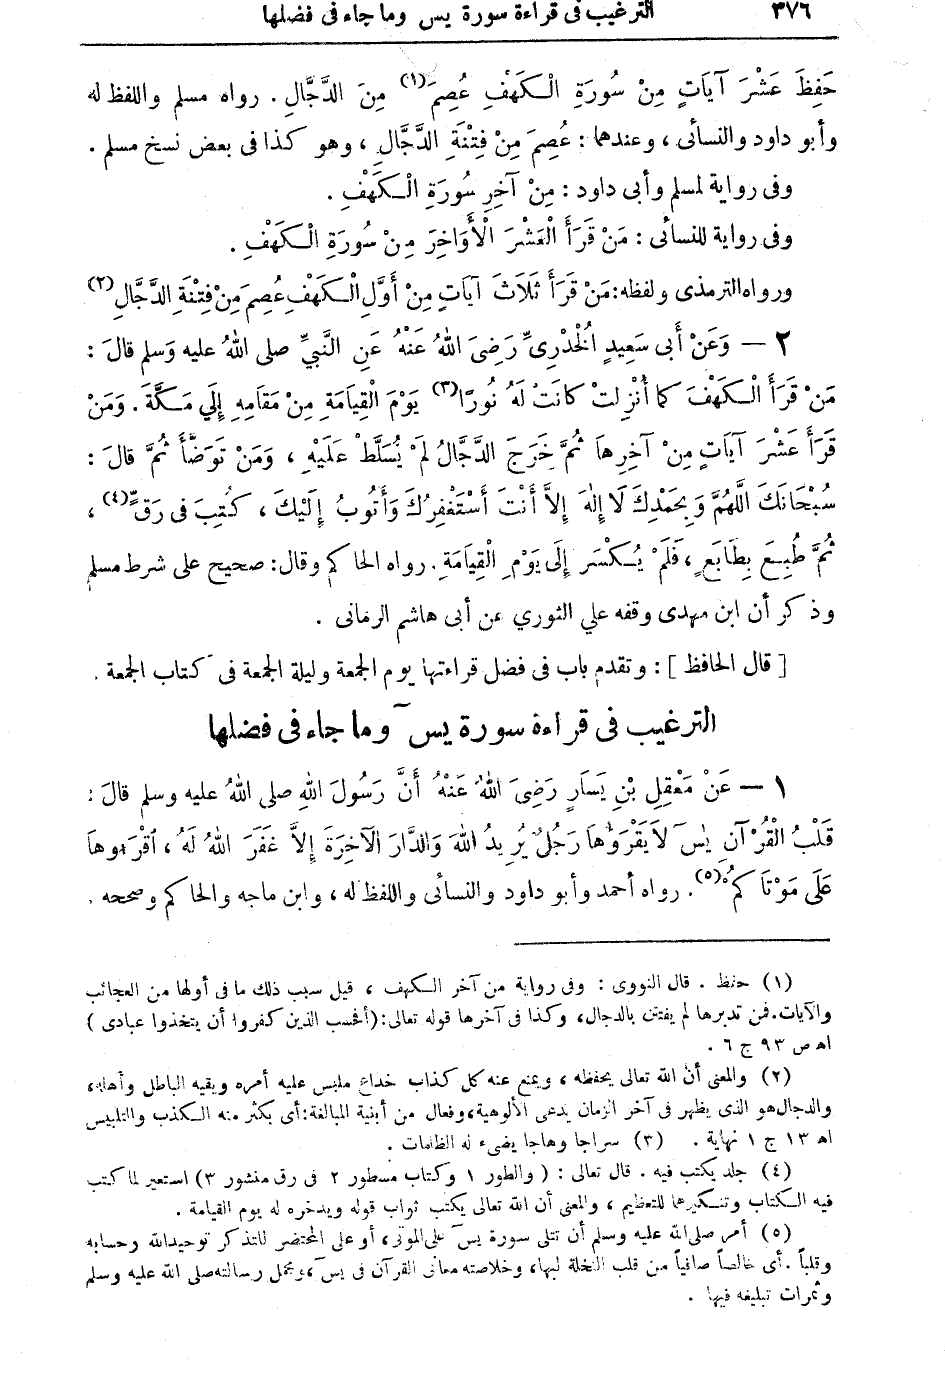 ٣٧٦ الترغيب فى قراءة سورة يس وما جاء فى فضلها
حَفِظَ عَشْرَ آيَاتٍ مِنْ سُورَةِ الْكَهْفِ عُصِمَ (١) مِنَ الدَّجَّالِ . رواه مسلم واللفظ له
وأبو داود والنسائى ، وعندهما : عُصِمَ مِنْ فِتْنَةِ الدَّجَّالِ ، وهو كذا فى بعض نسخ مسلم .
وفى رواية لمسلم وأبى داود : مِنْ آخِرِ سُورَةِ الْكَهْفِ .
وفى رواية للنسائى : مَنْ قَرَأَ الْعَشْرَ الْأَوَاخِرَ مِنْ سُورَةِ الْكَهْفِ .
ورواه الترمذى ولفظه : مَنْ قَرَأَ ثَلَاثَ آيَاتٍ مِنْ أَوَّلِ الْكَهْفِ عُصِمَ مِنْ فِتْنَةِ الدَّجَّالِ (٢)
٢ — وَعَنْ أَبِى سَعِيدٍ الْخُدْرِىِّ رَضِىَ اللهُ عَنْهُ عَنِ النَّبِيِّ صلى اللهُ عليه وَسلم قالَ :
مَنْ قَرَأَ الْكَهْفَ كما أُنْزِلتْ كانَتْ لَهُ نُورًا (٣) يَوْمَ الْقِيَامَةِ مِنْ مَقَامِهِ إِلَي مَكَّةَ . وَمَنْ
قَرَأَ عَشْرَ آيَاتٍ مِنْ آخِرِهاَ ثُمَّ خَرَجَ الدَّجَّالُ لَمْ يُسَلَّطْ عَلَيْهِ ، وَمَنْ تَوَضَّأَ ثُمَّ قالَ :
سُبْحَانَكَ اللَّهُمَّ وَبِحَمْدِكَ لَا إِلَهَ إِلاَّ أَنْتَ أَسْتَغْفِرُكَ وَأَتُوبُ إِلَيْكَ ، كُتِبَ فى رَقٍّ (٤) ،
ثُمَّ طُبِعَ بِطَابَعٍ ، فَلَمْ يُكْسَر إِلَى يَوْمِ الْقِيَامَةِ . رواه الحاكم وقال : صحيح على شرط مسلم
وذكر أن ابن مهدى وقفه علي الثوري عن أبى هاشم الرمانى .
[ قال الحافظ ] : وتقدم باب فى فضل قراءتها يوم الجمعة وليلة الجمعة فى كتاب الجمعة .
الترغيب فى قراءة سورة يس وما جاء فى فضلها
١ — عَنْ مَعْقِلِ بْنِ يَسَارٍ رَضِىَ اللهُ عَنْهُ أَنَّ رَسُولَ اللهِ صلى اللهُ عليه وسلم قالَ :
قَلْبُ الْقُرْآنِ يٰسَ لاَ يَقْرَؤُهاَ رَجُلٌ يُرِيدُ اللهَ وَالدَّارَ الْآخِرَةَ إِلاَّ غَفَرَ اللهُ لَهُ ، اقْرَءوهاَ
عَلَى مَوْتَاكُمْ (٥) . رواه أحمد وأبو داود والنسائى واللفظ له ، وابن ماجه والحاكم وصححه .
(١) حفظ . قال النووى : وفى رواية من آخر الكهف ، قيل سبب ذلك ما فى أولها من العجائب
والآيات . فمن تدبرها لم يفتتن بالدجال، وكذا فى آخرها قوله تعالى : (أفحسب الذين كفروا أن يتخذوا عبادى )
اه ص ٩٣ ج ٦ .
(٢) والمعنى أن الله تعالى يحفظه ، ويمنع عنه كل كذاب خداع ملبس عليه أمره ويقيه الباطل وأهله،
والدجال هو الذى يظهر فى آخر الزمان يدعى الألوهية، وفعال من أبنية المبالغة : أى يكثر منه الكذب والتلبيس
اه ١٣ ج ١ نهاية . (٣) سراجا وهاجا يضىء له الظلمات .
(٤) جلد يكتب فيه . قال تعالى : ( والطور ١ وكتاب مسطور ٢ فى رق منشور ٣ ) استعير لما كتب
فيه الكتاب وتنكيرهما للتعظيم ، والمعنى أن الله تعالى يكتب ثواب قوله ويدخره له يوم القيامة .
(٥) أمر صلى الله عليه وسلم أن تتلى سورة يس على الموتى، أو على المحتضر ليتذكر توحيد الله وحسابه
وقلباً . أى خالصاً صافياً من قلب النخلة لبها، وخلاصته معانى القرآن فى يس، ومجمل رسالته صلى الله عليه وسلم
وثمرات تبليغه فيها .